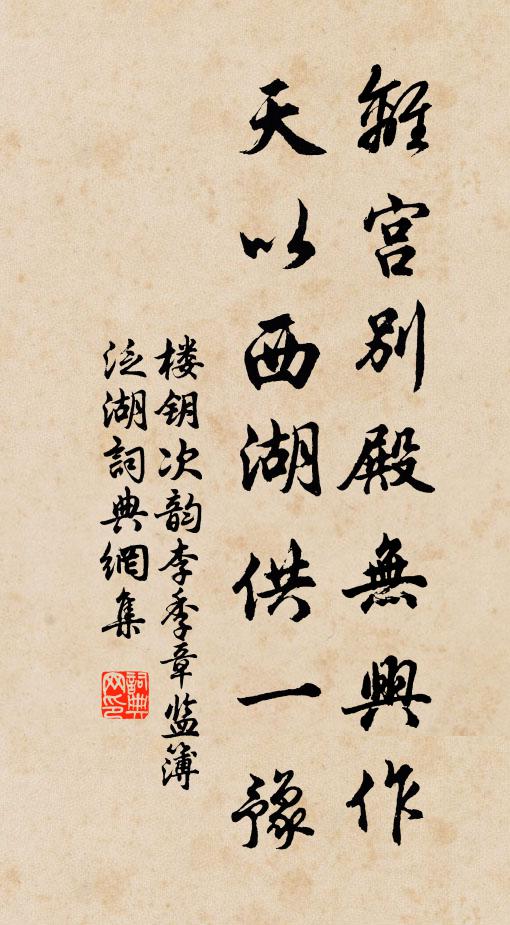 離宮別殿無興作
天以西湖供一豫
楼钥次韵李季章监簿
泛湖詞典網集
詞典网印